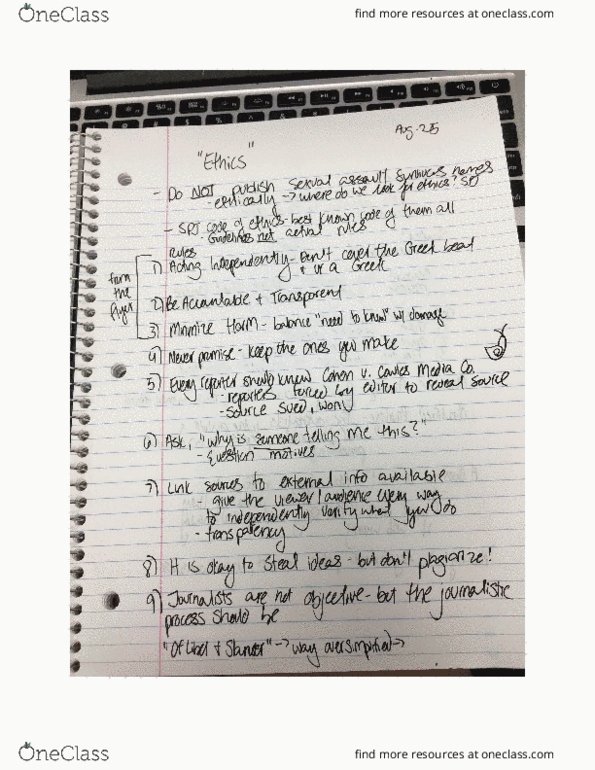 OneClass
find more resources at oneclass.com
Aug. 25
"Ethics"
- Do NOT publish sexual assault survivors names
- ethically → where do we look for ethics? SPJ
- SPJ code of ethics - best known code of them all
- Guidelines not actual rules
Rules
from the flyer
1) Acting Independently - Don't cover the Greek beat
if ur a Greek
2) Be Accountable + Transparent
3) Minimize Harm - balance "need to know" w/ damage
4) Never promise - keep the ones you make
5) Every reporter should know Cohen v. Cowles Media Co.
- reporters forced by editor to reveal source
- source sued, won
6) Ask, "why is someone telling me this?"
- question motives
7) Link sources to external info available
- give the viewer/audience every way
to independently verify what you do
- transparency
8) It is okay to steal ideas - but don't plagiarize!
9) Journalists are not objective - but the journalistic
process should be
"Of Libel + Slander" → way oversimplified →
OneClass
find more resources at oneclass.com